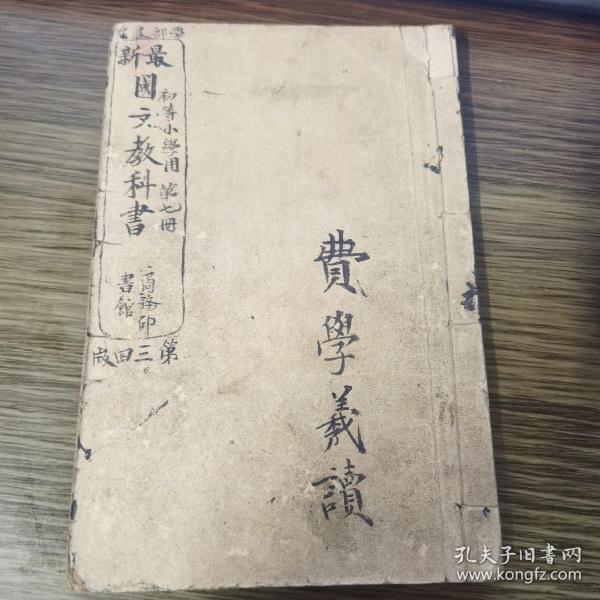 學部審定
最新
國文教科書
初等小學用 第七冊
商務印
書館
第三四版
費學義讀
孔夫子旧书网
www.kongfz.com